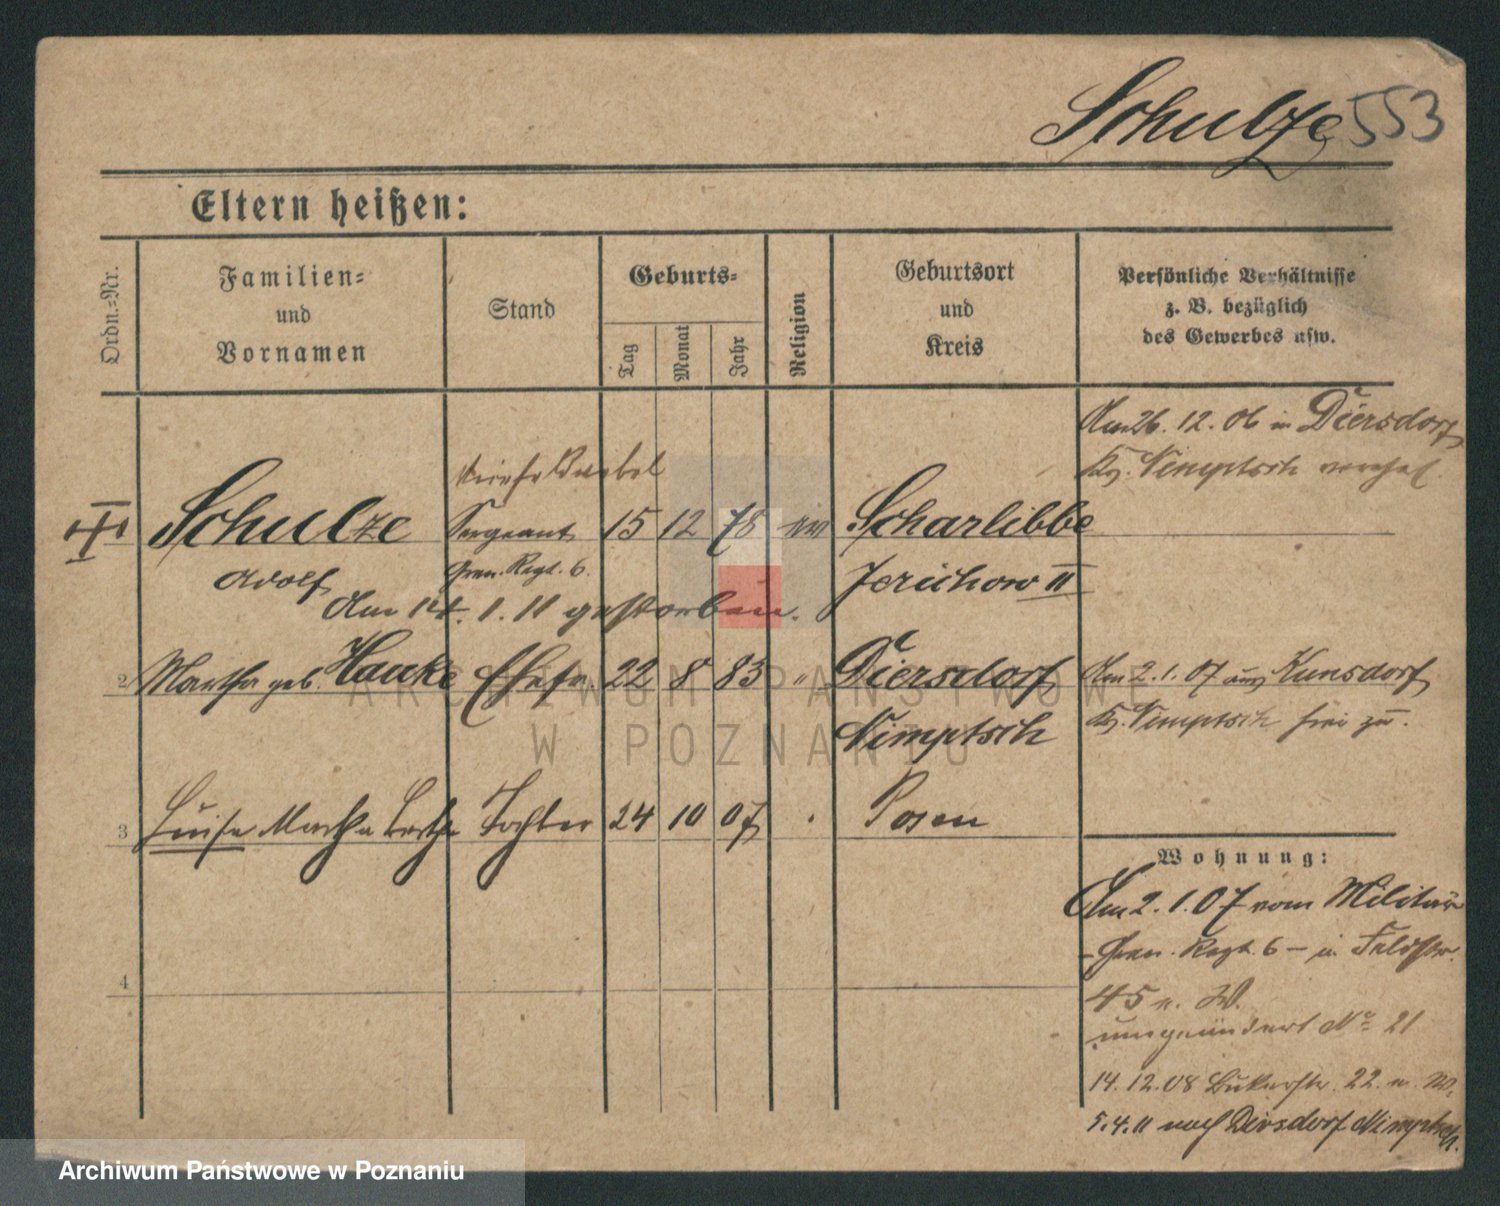 Schulze 553
Eltern heißen:
Ordn.-Nr.
Familien-
und
Vornamen
Stand
Geburts-
Tag
Monat
Jahr
Religion
Geburtsort
und
Kreis
Persönliche Verhältnisse
z. B. bezüglich
des Gewerbes usw.
Am 26. 12. 06 in Diersdorf
Kr. Nimptsch
Schulze Sergeant 15 12 78 ev Scharlibbe
Adolf Gren. Regt. 6. Jerichow II
Am 14. 1. 11 gestorben.
2 Martha geb. Hauke Ehefr. 22 8 83 " Diersdorf
Nimptsch
Am 2. 1. 07 aus Kunsdorf
Kr. Nimptsch
3 Luise Martha Tochter 24 10 07 Posen
4
Wohnung:
Am 2. 1. 07 vom Militär
- Gren. Regt. 6 - in Feldstr.
45 n. W.
umgeändert No 21
14. 12. 08 Bukerstr. 22. n. W.
5. 4. 11 nach Dirsdorf Nimptsch.
ARCHIWUM PAŃSTWOWE
W POZNANIU
Archiwum Państwowe w Poznaniu